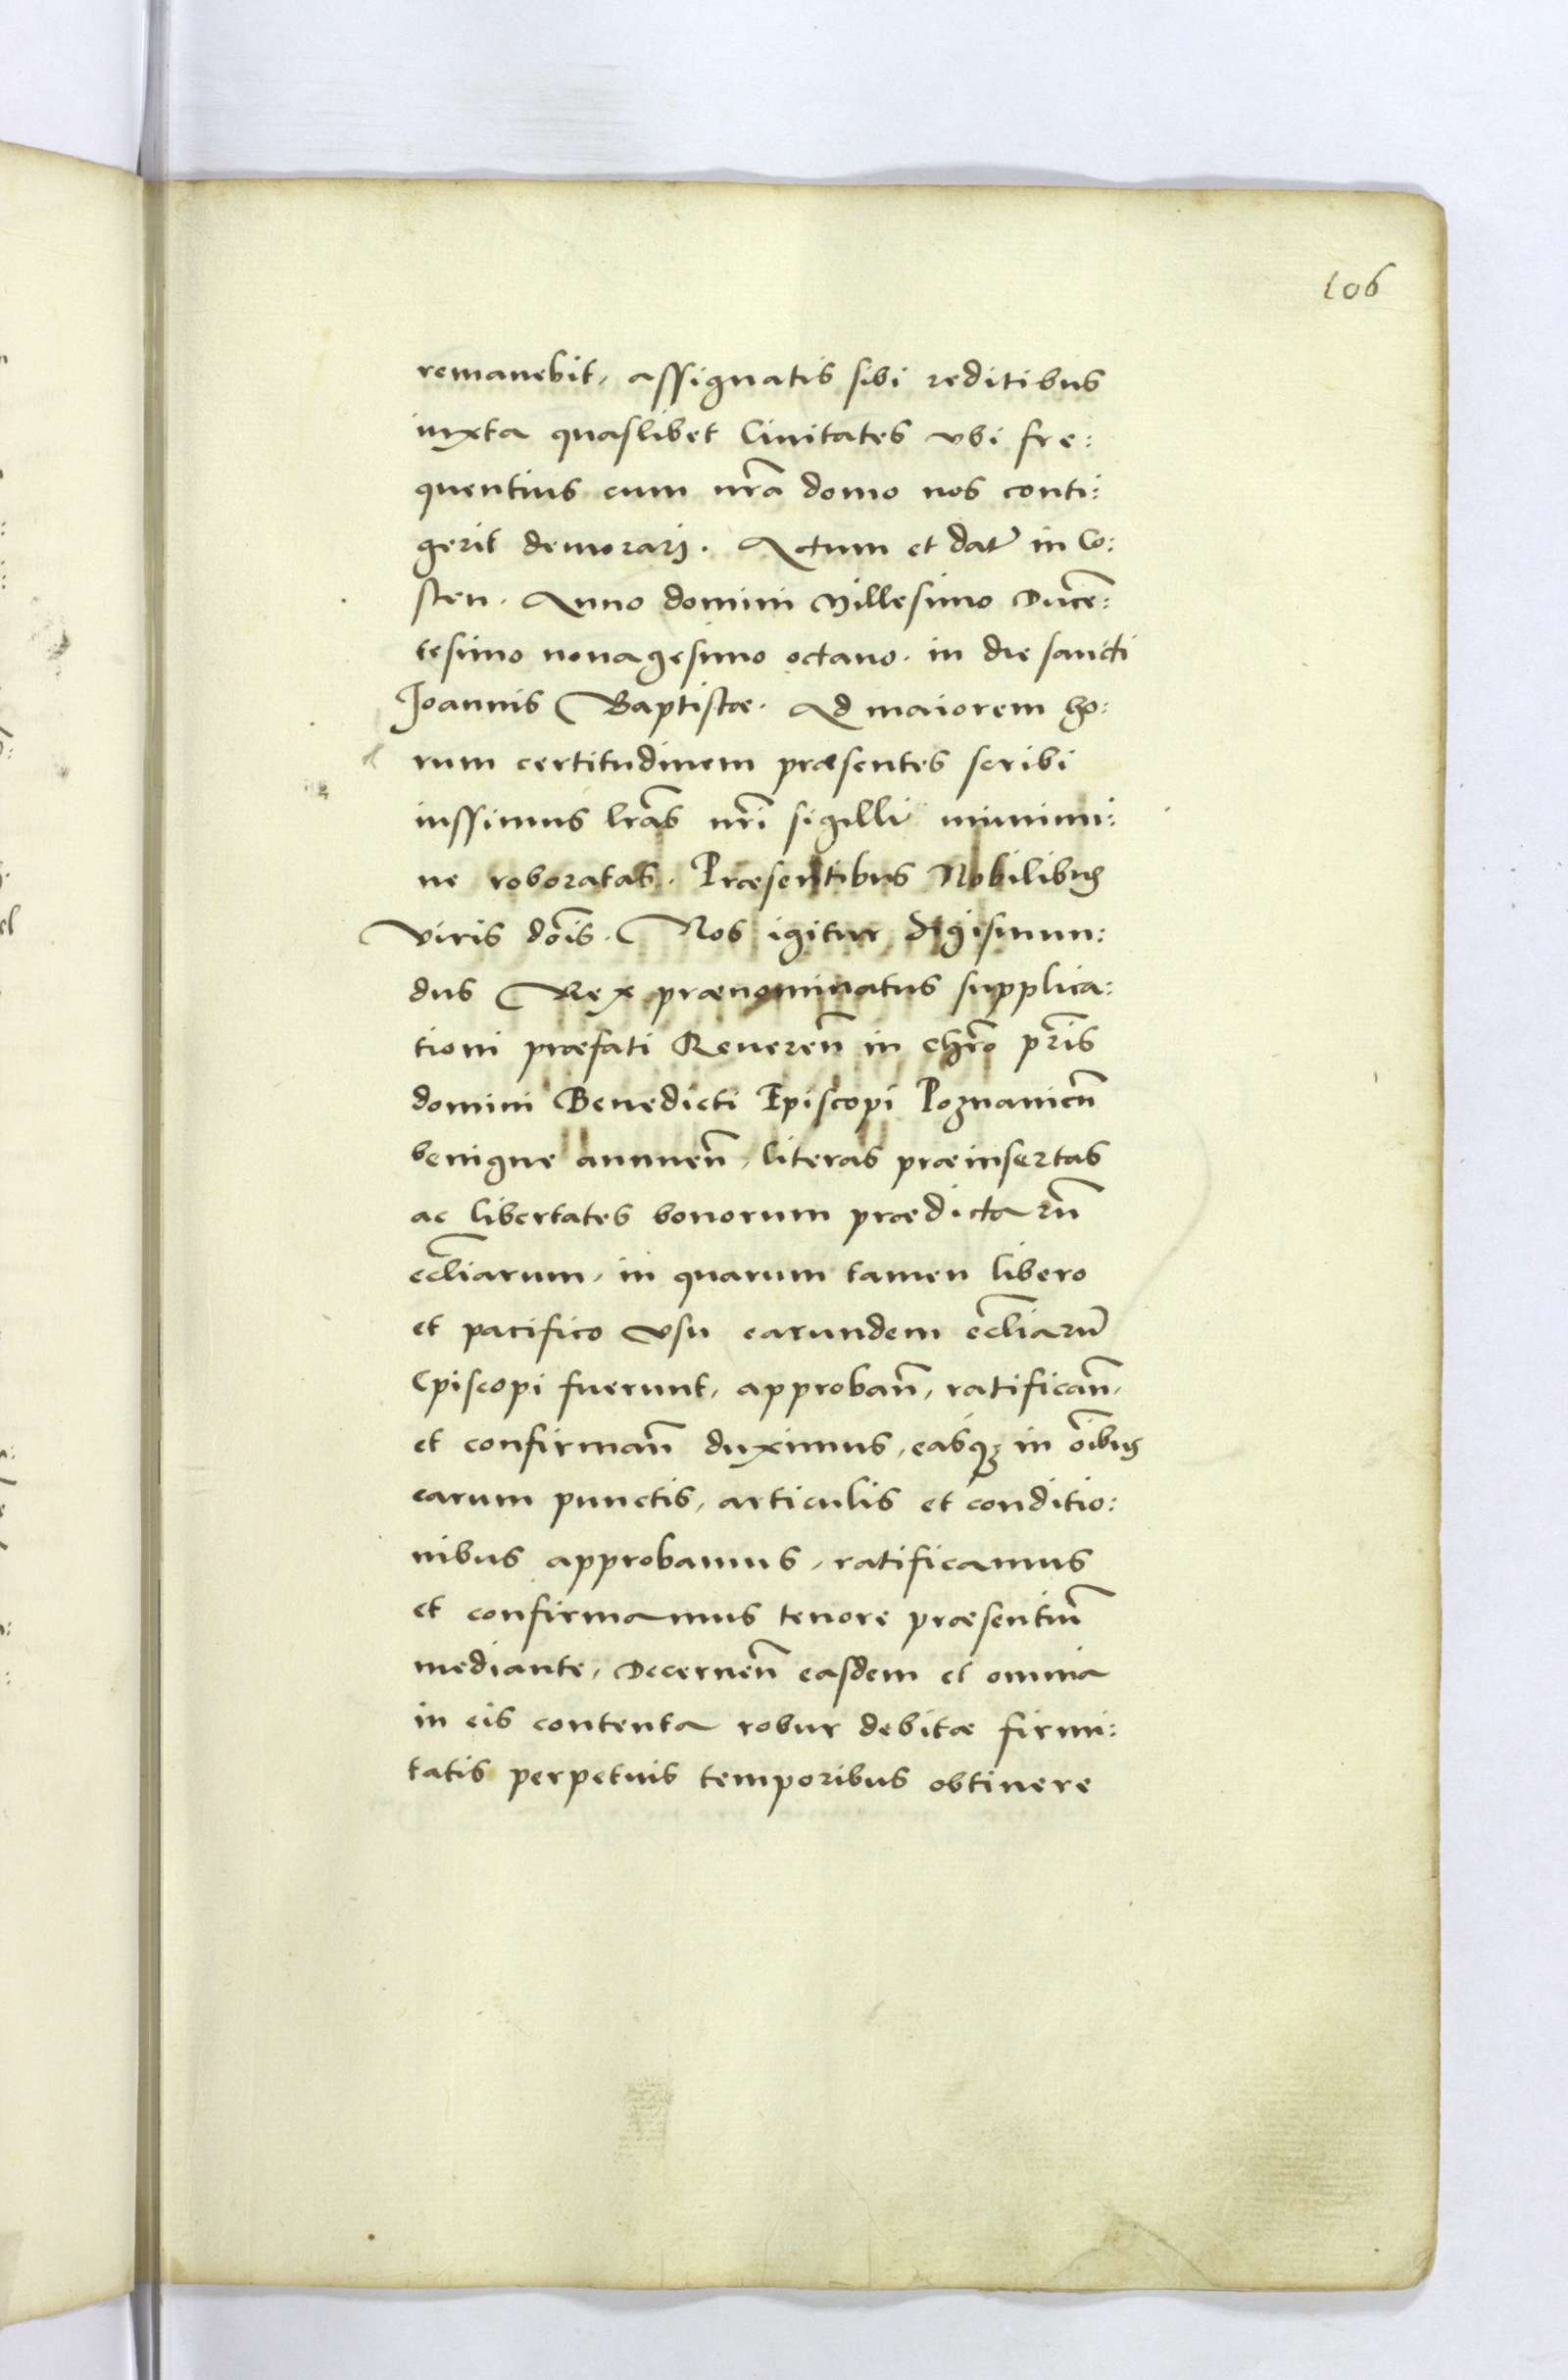 106
remanebit, assignatis sibi reditibus
iuxta quaslibet Ciuitates vbi fre:
quentius cum nrã domo nos conti:
gerit demorarj. Actum et dat̃ in Co:
sten. Anno domini Millesimo Ducẽ:
tesimo nonagesimo octauo. in die sancti
Joannis Baptistæ. Ad maiorem ho:
rum certitudinem præsentes scribi
iussimus lrãs nrĩ sigilli munimi:
ne roboratas. Præsentibus Nobilibus
viris doĩs. Nos igitur Sigismun:
dus Rex prænominatus supplica:
tioni præfati Reuereñ in chrõ pr̃is
domini Benedicti Episcopi Poznanieñ
benigne annueñ, literas præinsertas
ac libertates bonorum prædictarũ
eccl̃iarum, in quarum tamen libero
et pacifico vsu earundem eccl̃iarũ
Episcopi fuerunt, approbañ, ratificañ,
et confirmañ duximus, easq̃ in oĩbus
earum punctis, articulis et conditio:
nibus approbamus, ratificamus
et confirmamus tenore præsentiũ
mediante, Decerneñ easdem et omnia
in eis contenta robur debitæ firmi:
tatis perpetuis temporibus obtinere